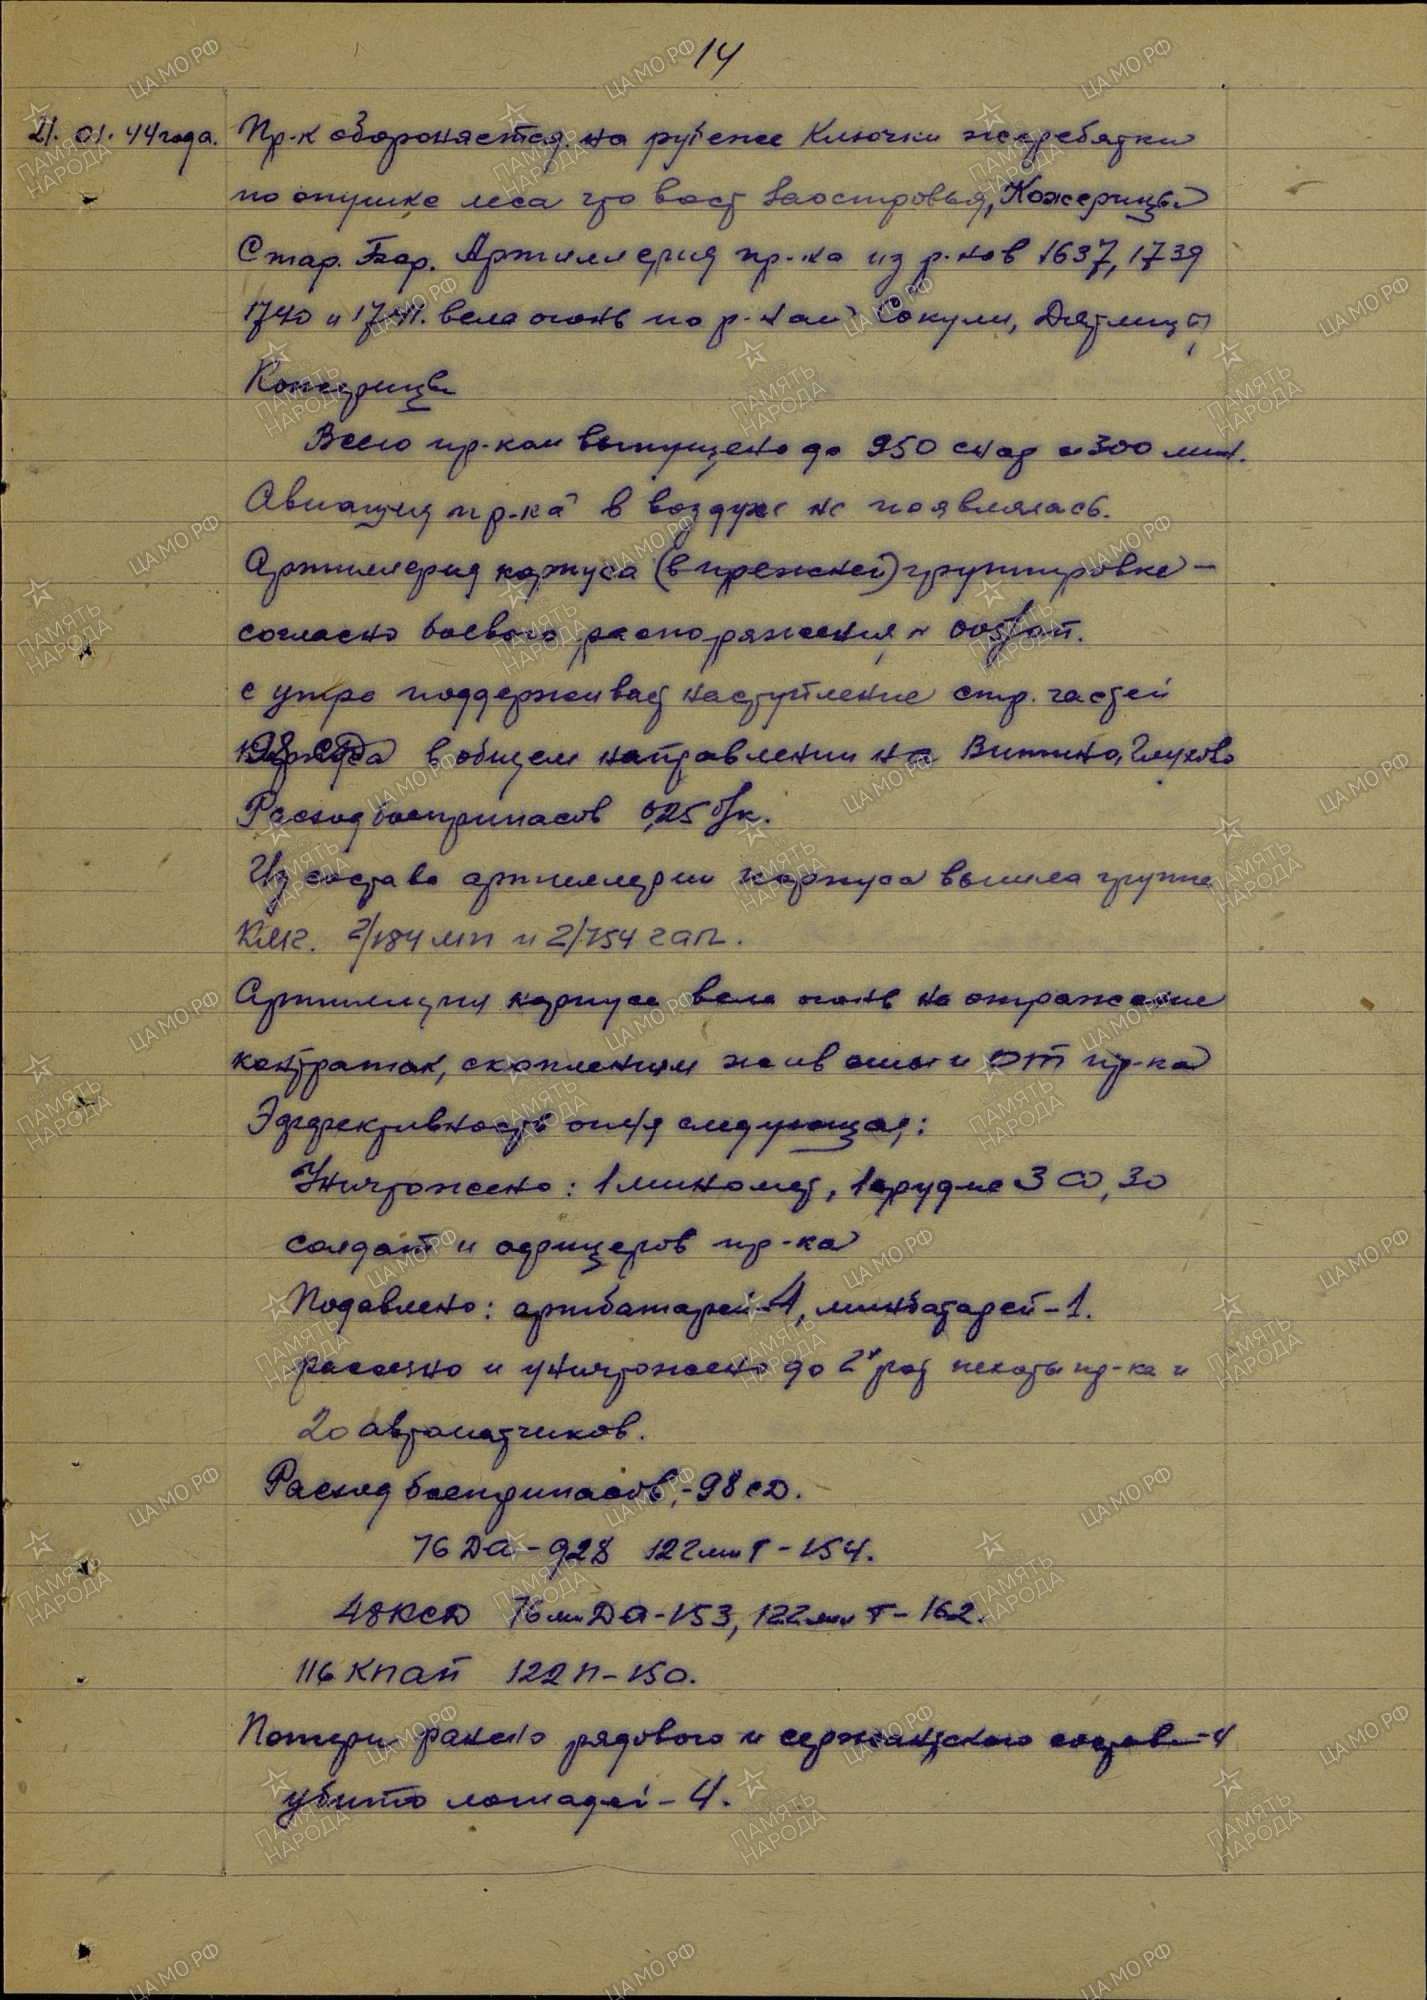 14
21. 01. 44 года. Пр-к обороняется на рубеже Ключки жеребятки
по опушке леса что вост Заостровья, Кожерицы
Стар. Бор. Артиллерия пр-ка из р-нов 1637, 1739
1740 и 1741. вела огонь по р-нам Сокули, Дятлицы,
Кожерицы
Всего пр-ком выпущено до 950 снар и 300 мин.
Авиация пр-ка в воздухе не появлялась.
Артиллерия корпуса (в прежней) группировке –
согласно боевого распоряжения № 005/оп.
с утра поддерживает наступление стр. частей
98 СД в общем направлении на Витино, Глухово
Расход боеприпасов 0,25 б/к.
Из состава артиллерии корпуса вышла группа
КМГ. 2/184 мп и 2/154 гап.
Артиллерия корпуса вела огонь на отражение
контратак, скоплениям жив силы и ОТ пр-ка
Эффективность огня следующая;:
Уничтожено: 1 миномет, 1 орудие ЗСО, 30
солдат и офицеров пр-ка
Подавлено: артбатарей-4, минбатарей-1.
рассеяно и уничтожено до 2х рот пехоты пр-ка и
20 автоматчиков.
Расход боеприпасов;-98 сд.
76 ДА-928 122 мм Г-154.
48 КСД 76 мм ДА-153, 122 мм Г-162.
116 КПАП 122 П-150.
Потери ранено рядового и сержантского состава-4
убито лошадей-4.
ПАМЯТЬ НАРОДА
ЦАМО.РФ